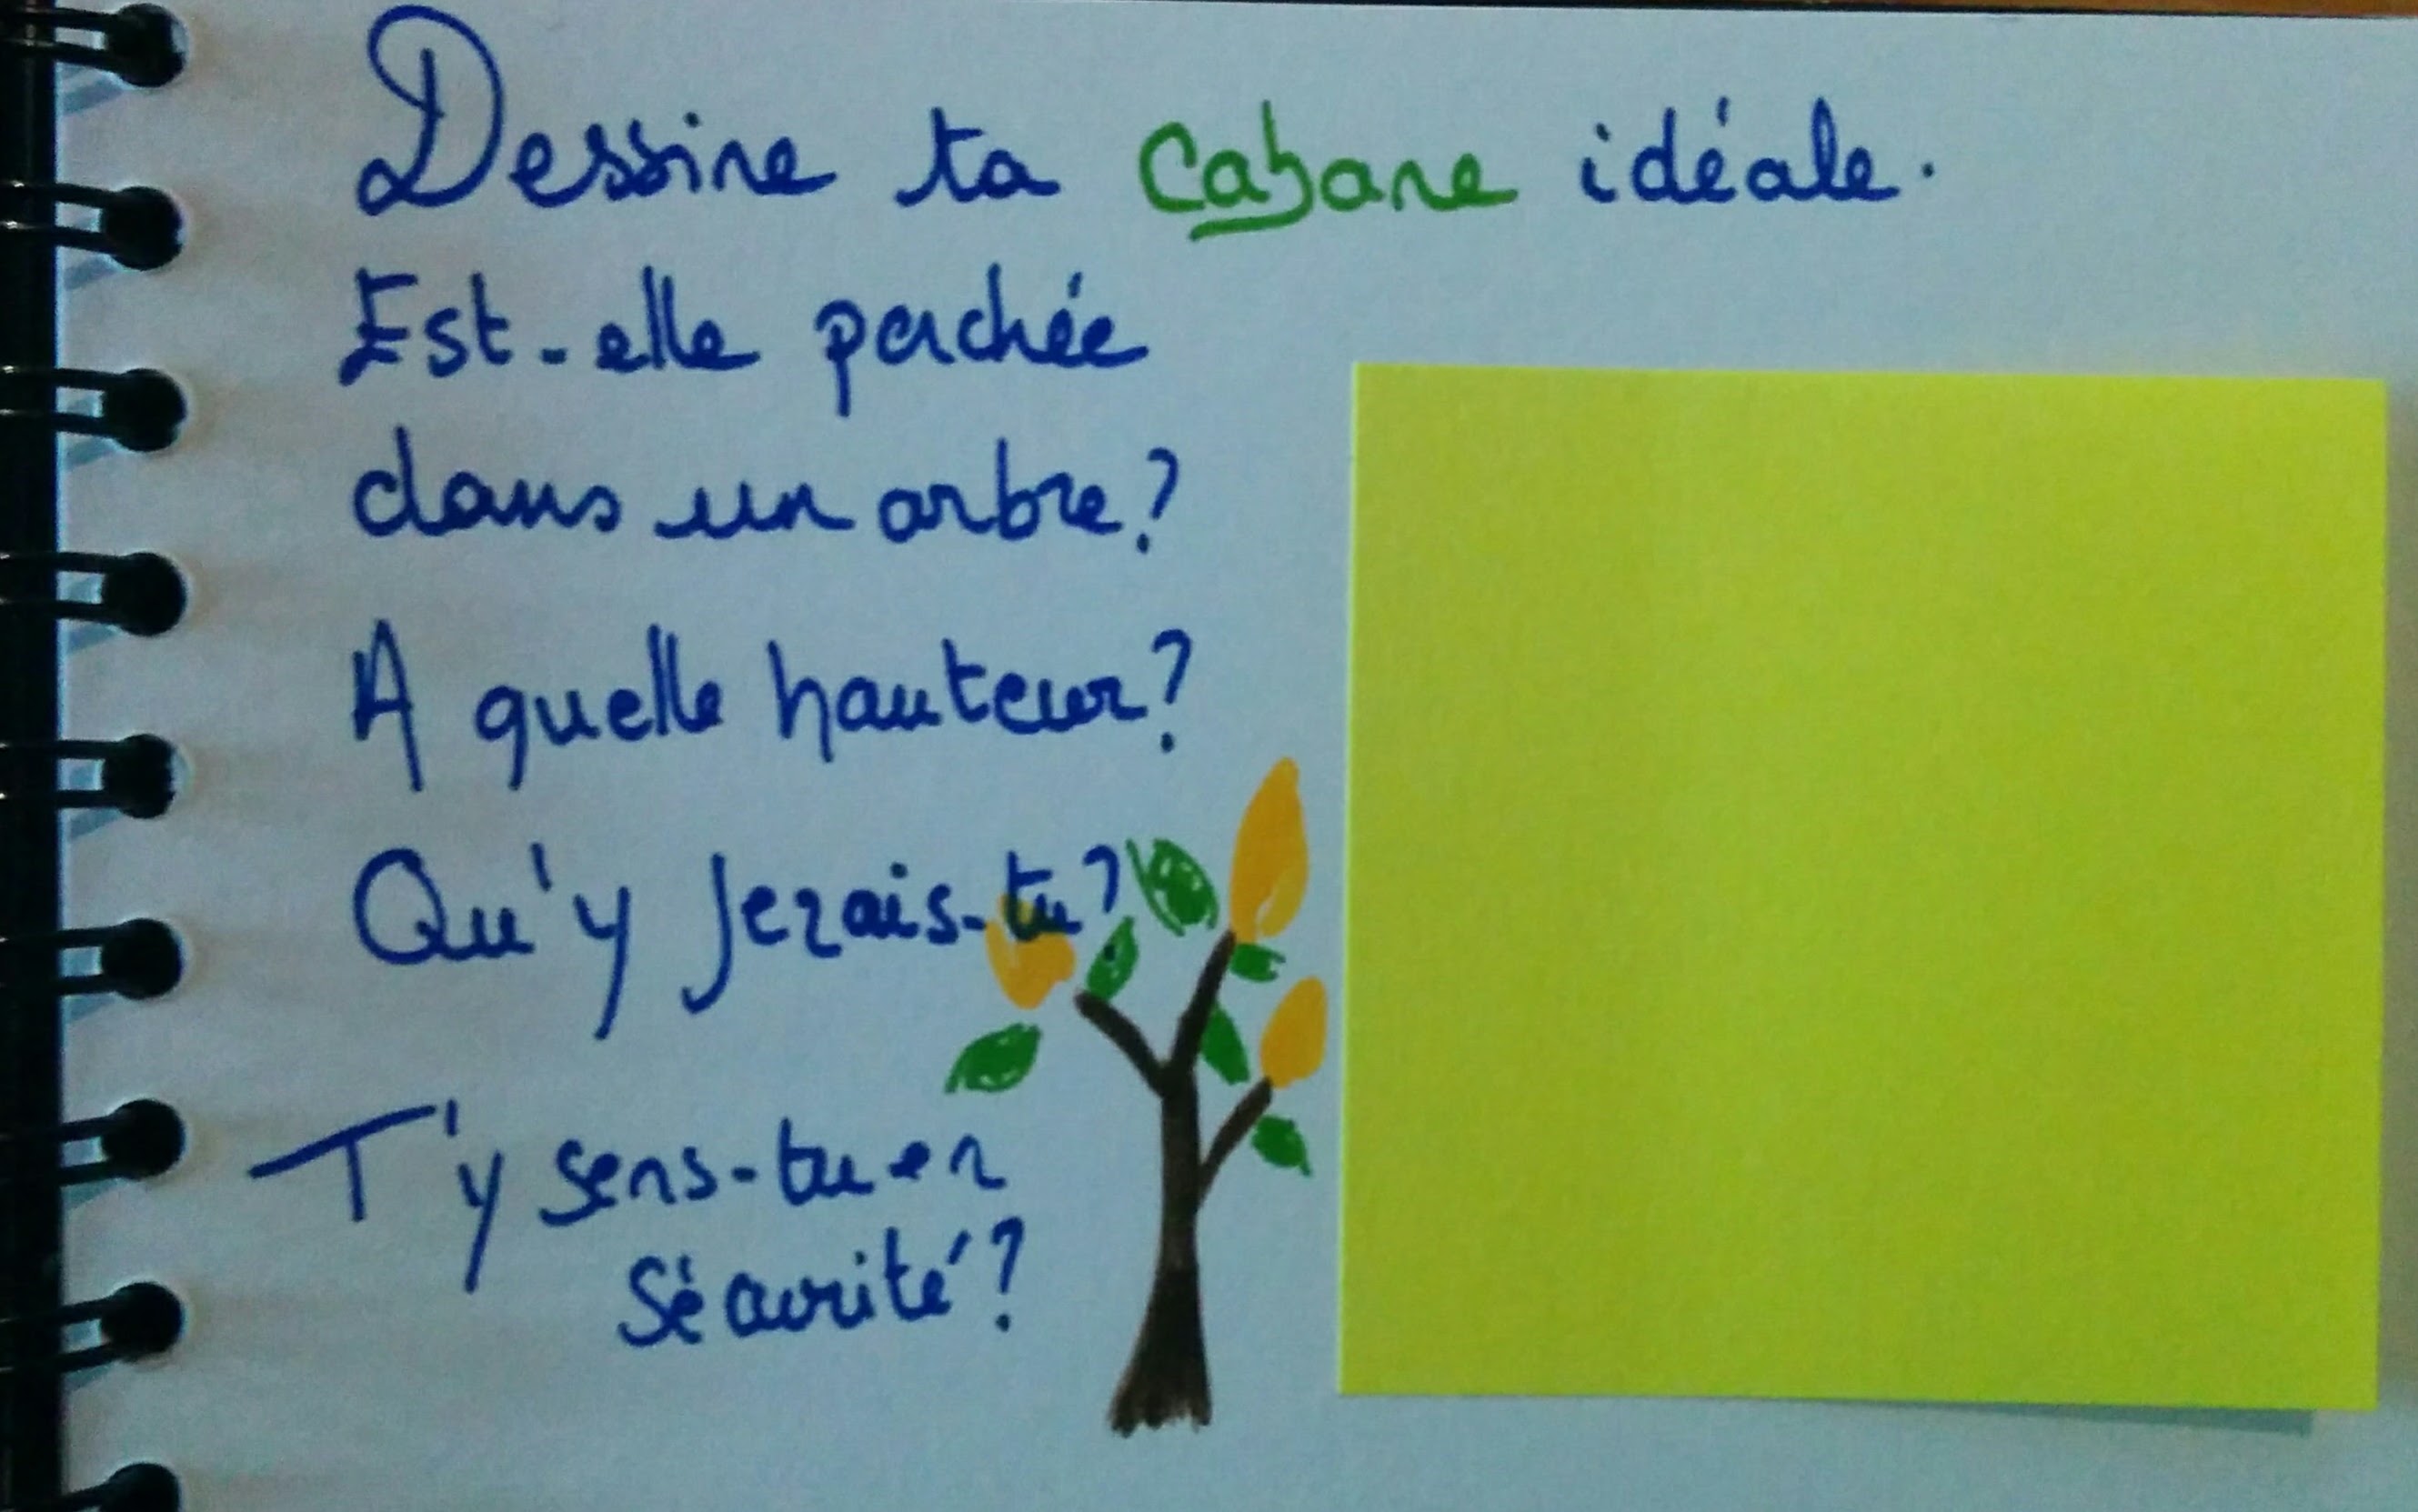 Dessine ta cabane idéale.
Est-elle perchée
dans un arbre?
A quelle hauteur?
Qu'y ferais-tu?
T'y sens-tu en
sécurité?